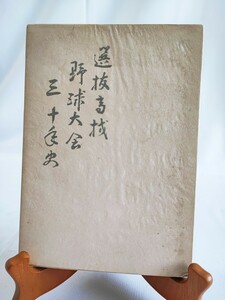 選抜高校
野球大会
三十年史